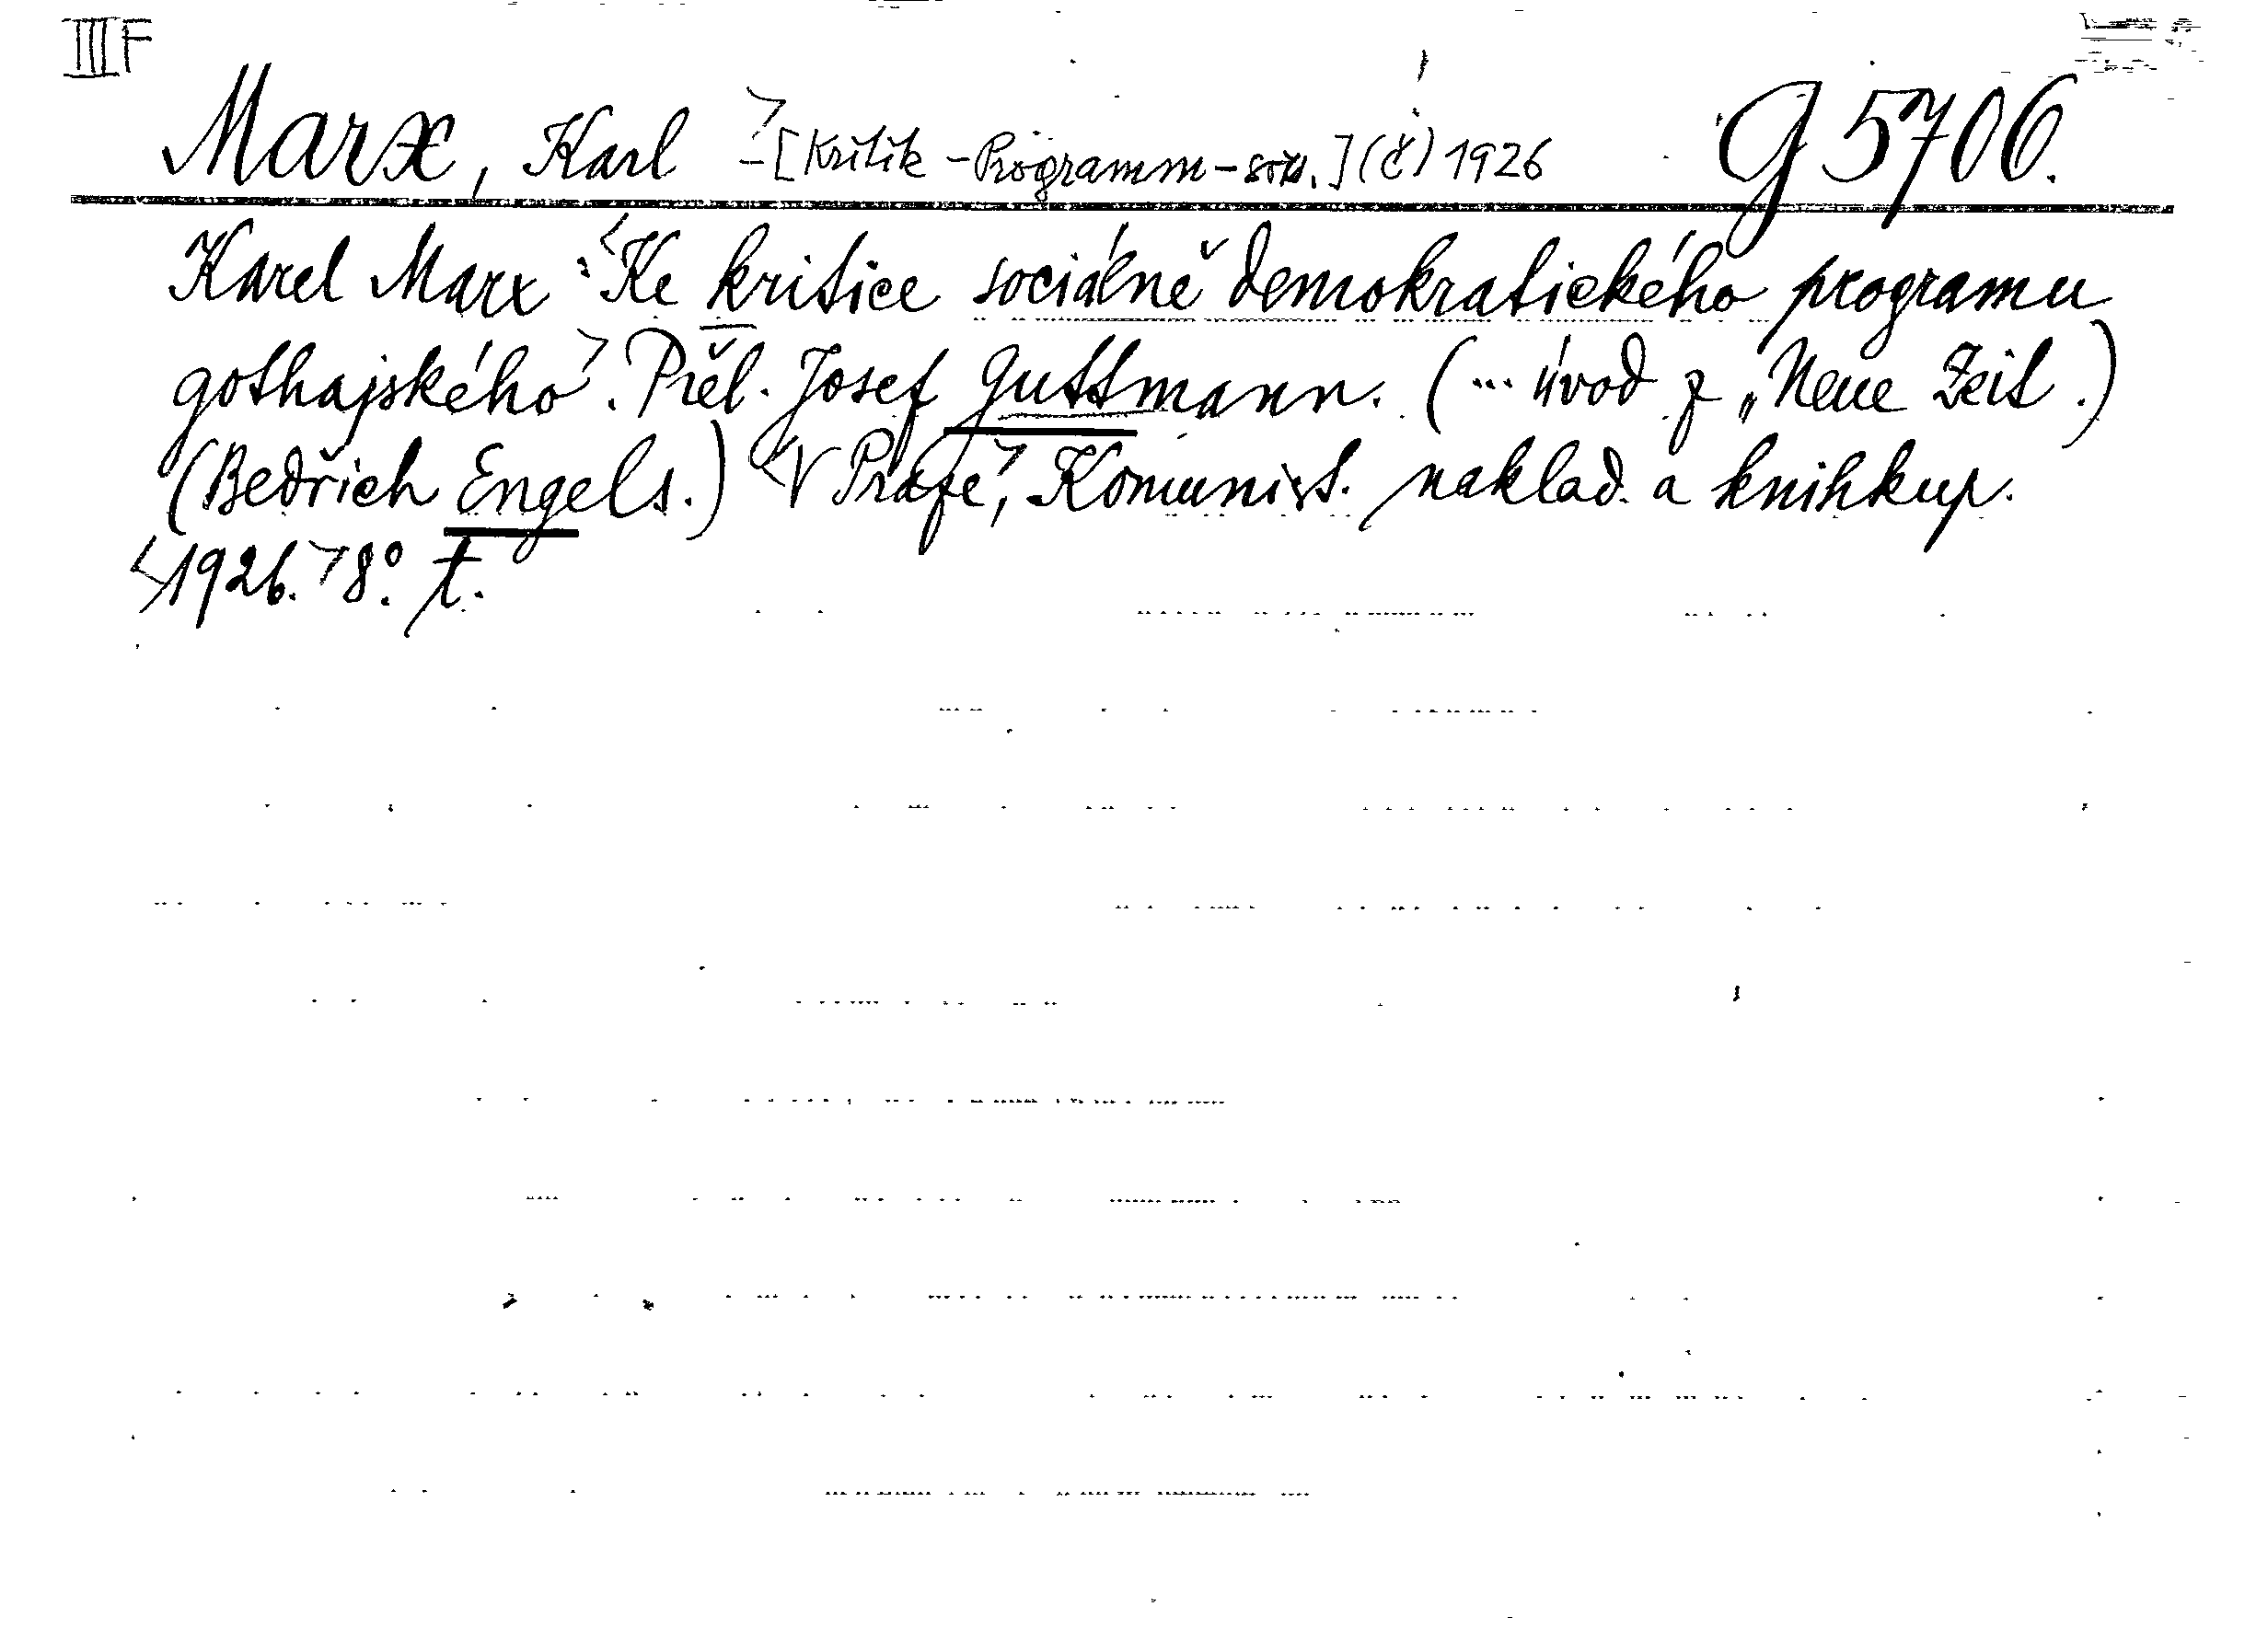 III F
Marx, Karl - [Kritik - Programm - soz.] (č) 1926 G 5706.
Karel Marx: Ke kritice sociálně demokratického programu
gothajského. Přel. Josef Guttmann. (... úvod z „Neue Zeit.)
(Bedřich Engels.) V Praze, Komunist. naklad. a knihkup.
1926. 8°. t.